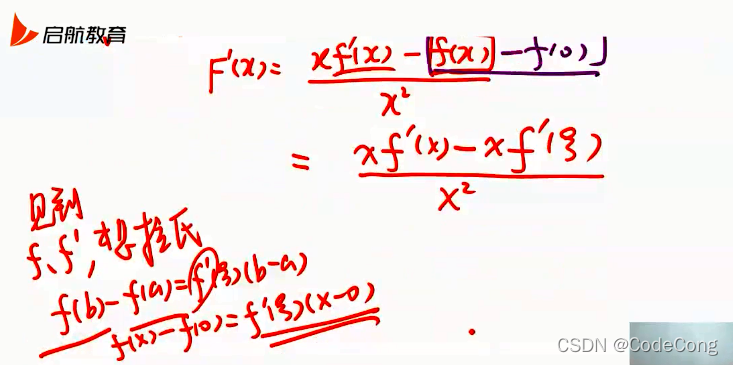 启航教育
F'(x) = \frac{xf'(x) - [f(x) - f(0)]}{x²}
= \frac{xf'(x) - xf'(ξ)}{x²}
见到
f、f', 想拉氏
f(b) - f(a) = f'(ξ)(b-a)
f(x) - f(0) = f'(ξ)(x-0)
CSDN @CodeCong